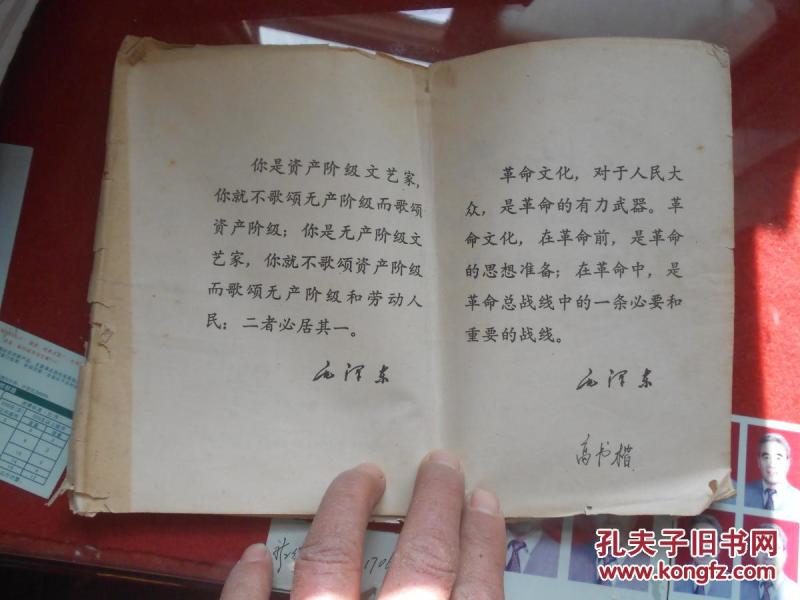 你是资产阶级文艺家,
你就不歌颂无产阶级而歌颂
资产阶级；你是无产阶级文
艺家，你就不歌颂资产阶级
而歌颂无产阶级和劳动人
民：二者必居其一。
毛泽东
革命文化，对于人民大
众，是革命的有力武器。革
命文化，在革命前，是革命
的思想准备；在革命中，是
革命总战线中的一条必要和
重要的战线。
毛泽东
高书楷
孔夫子旧书网
www.kongfz.com